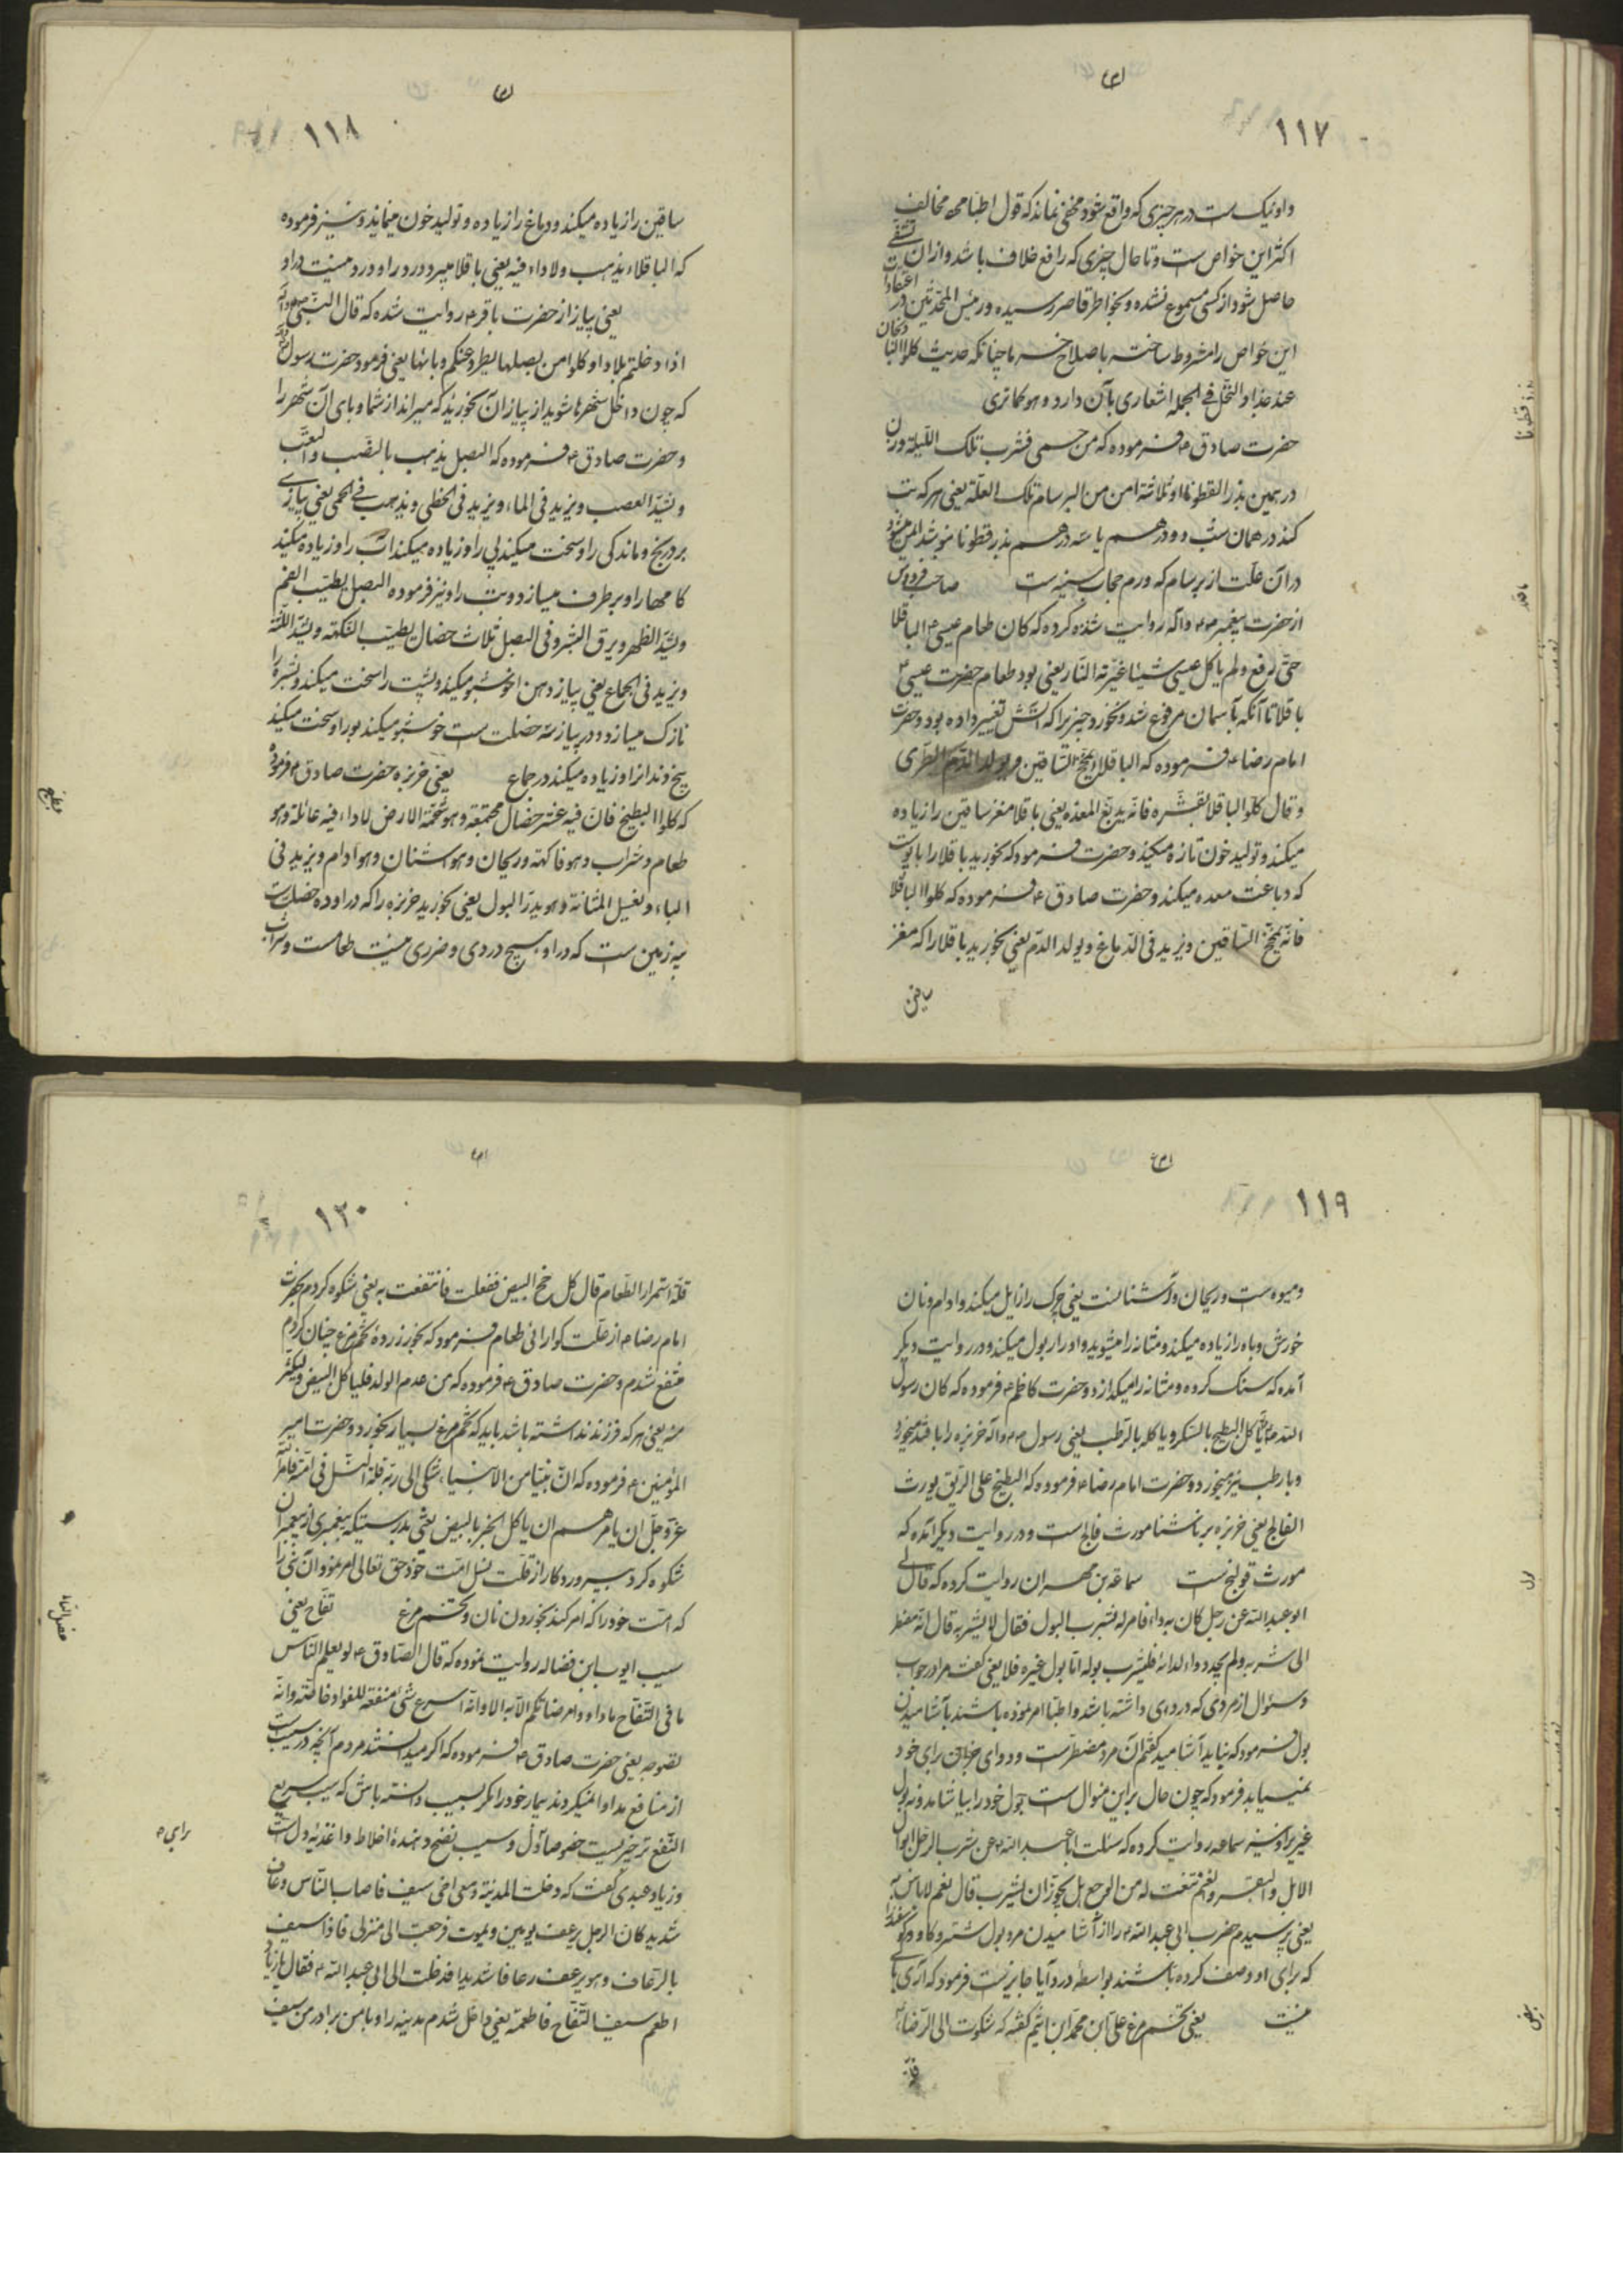 ۱۱۷
واو نیک است در هر چیزی که واقع شود مخفی نماند که قول اطبا همه مخالف
اکثر این خواص است و تا حال چیزی که رافع خلاف باشد و از آن
حاصل شود از کسی مسموع نشده و بخاطر قاصر نرسیده و رئیس المحدثین در
این خواص را مشروط ساخته باصلاح چنانکه حدیث کلوا البا
فی الجمله اشعاری بآن دارد و هو کما تری
حضرت صادق ع فرموده که من حم فشرب تلک اللیلة وزن
درهمین بذر القطونا او ثلاثة امن من البرسام تلک العلة یعنی هر که تب
کند در همان شب دو درهم یا سه درهم بذر قطونا بنوشد ایمن میشود
در آن علت از برسام که ورم حجاب سینه است صاحب فردوس
از حضرت پیغمبر ص و آله روایت کرده که کان طعام عیسی ع الباقلا
حتی رفع ولم یاکل عیسی شیئا غیرته النار یعنی بود طعام حضرت عیسی ع
باقلا تا آنکه بآسمان مرفوع شد و نخورد چیزیرا که آتش تغییر داده بود و حضرت
امام رضا ع فرموده که الباقلا یمخ الساقین و یولد الدم الطری
و قال کلوا الباقلا بقشره فانه یدبغ المعده یعنی باقلا مغز ساقین را زیاده
میکند و تولید خون تازه میکند و حضرت فرمود که بخورید باقلا را با پوست
که دباغت معده میکند و حضرت صادق ع فرموده که کلوا الباقلا
فانه یمخ الساقین و یزید فی الدماغ و یولد الدم یعنی بخورید باقلا را که مغز
ساقین
۱۱۸
ساقین را زیاده میکند و دماغ را زیاده و تولید خون مینماید و نیز فرموده
که الباقلاء یذهب ولا داء فیه یعنی باقلا میبرد درد را و درد نیست در او
یعنی پیاز از حضرت باقر ع روایت شده که قال النبی ص و آله
اذا دخلتم بلادا وکلوا من بصلها یطرد عنکم وبائها یعنی فرمود حضرت رسول
که چون داخل شهرها شوید از پیاز آن بخورید که میراند از شما وبای آن شهر را
و حضرت صادق ع فرموده که البصل یذهب بالنصب و التعب
و یشد العصب و یزید فی الماء و یزید فی الخطی و یذهب فی الحمی یعنی پیاز
برد رنج و ماندگی را و سخت میکند پی را و زیاده میکند آب را و زیاده میکند
گامها را و برطرف میسازد و تب را و نیز فرموده البصل یطیب الفم
و یشد الظهر و یرق البشر و فی البصل ثلاث خصال یطیب النکهة و یشد اللثة
و یزید فی الجماع یعنی پیاز دهن را خوشبو میکند و پشت را سخت میکند و بشره را
نازک میسازد و در پیاز سه خصلت است خوشبو میکند بو را و سخت میکند
بیخ دندانرا و زیاده میکند در جماع یعنی خربزه حضرت صادق ع فرموده
که کلوا البطیخ فان فیه عشر خصال مجتمعة و هو شحمة الارض لا داء فیه و
طعام و شراب و هو فاکهة و ریحان و هو اشنان و هو ادام و یزید فی
الباء و یغسل المثانة و هو یدر البول یعنی بخورید خربزه را که در او ده خصلت
پیه زمین است که در او هیچ دردی و ضرری نیست طعامست و شراب
بطیخ
۱۱۹
و میوه است و ریحان و اشنانست یعنی چرک را زایل میکند و ادام و نان
خورش و باه را زیاده میکند و مثانه را میشوید و ادرار بول میکند و در روایت دیگر
آمده که سنک کرده و مثانه را میگدازد و حضرت کاظم ع فرموده که کان رسول
الله ص یاکل البطیخ بالسکر و یاکله بالرطب یعنی رسول ص و آله خربزه را با قند میخورد
و با رطب نیز میخورد و حضرت امام رضا ع فرموده که البطیخ علی الریق یورث
الفالج یعنی خربزه بر ناشتا مورث فالج است و در روایت دیگر آمده که
مورث قولنج است سماعة بن مهران روایت کرده که قال لی
ابو عبد الله عن رجل کان به داء فامر له بشرب البول فقال لا یشربه قال انه مضطر
الی شربه ولم یجد دواء لدائه فلیشرب بوله اما بول غیره فلا یعنی گفت مرا در جواب
و سئوال از مردی که دردی داشته باشد و اطبا امر نموده باشند بآشامیدن
بول فرمود که نباید آشامید گفتم آن مرد مضطر است و دوای برای خود
نمییابد فرمود که چون حال بر این منوال است بول خود را بیاشامد و نه بول
غیر را و نیز سماعه روایت کرده که سئلت ابا عبد الله ع عن شرب الرجل ابوال
الابل و البقر و الغنم تنعت له من الوجع هل یجوز ان یشرب قال نعم لا باس به
یعنی پرسیدم حضرت ابی عبد الله ع را از آشامیدن مرد بول شتر و گاو و گوسفند
که برای او وصف کرده باشند بواسطه درد آیا جایز است فرمود که آری باک
نیست یعنی تخم مرغ علی ابن محمد ابن اشیم گفته که شکوت الی الرضا ع
قلة
بول
بیض
۱۲۰
قلة استمرار الطعام قال کل مخ البیض ففعلت فانتفعت به یعنی شکوه کردم بحضرت
امام رضا ع از علت گوارائی طعام فرمود که بخور زرده تخم مرغ چنان کردم
منتفع شدم و حضرت صادق ع فرموده که من عدم الولد فلیاکل البیض ولیکثر
منه یعنی هر که فرزند نداشته باشد باید که تخم مرغ بسیار بخورد و حضرت امیر
المؤمنین ع فرموده که ان نبیا من الانبیاء شکی الی ربه قلة النسل فی امته فامره
عز و جل ان یامرهم ان یاکل الخبز بالبیض یعنی بدرستیکه پیغمبری از پیغمبران
شکوه کرد بپروردگار از قلت نسل امت خود حق تعالی امر نمود آن نبی را
که امت خود را که امر کند بخوردن نان و تخم مرغ تفاح یعنی
سیب ایوب ابن فضاله روایت نموده که قال الصادق ع لو یعلم الناس
ما فی التفاح ما داووا مرضاتهم الا به الا وانه اسرع شئ منفعة للفواد خاصة وانه
نضوجه یعنی حضرت صادق ع فرموده که اگر میدانستند مردم آنچه در سیب است
از منافع مداوا نمیکردند بیمار خود را مگر بسیب دانسته باش که سیب سریع
النفع تر چیزیست خصوصا دل و سیب نضج دهنده اخلاط و اغذیه دل است
و زیاد عبدی گفت که دخلت المدینة و معی اخی سیف فاصاب الناس رعاف
شدید کان الرجل یرعف یومین و یموت فرجعت الی منزلی فاذا سیف
بالرعاف و هو یرعف رعافا شدیدا فدخلت الی ابی عبد الله ع فقال یا زیاد
اطعم سیفا التفاح فاطعمته یعنی داخل شدم مدینه را و با من برادر من سیف